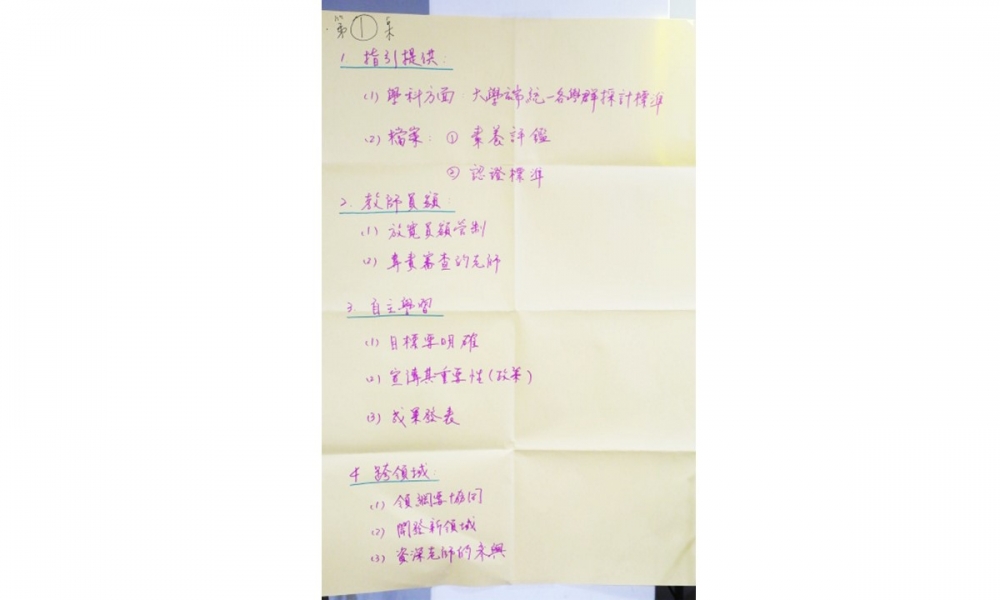 第①桌
1. 指引提供:
(1) 學科方面: 大學端統一各學群採計標準
(2) 檔案: ① 素養評鑑
② 認證標準
2. 教師員額:
(1) 放寬員額管制
(2) 專責審查的老師
3. 自主學習
(1) 目標要明確
(2) 宣講其重要性(政策)
(3) 成果發表
4 跨領域:
(1) 領綱要協同
(2) 開發新領域
(3) 資深老師的